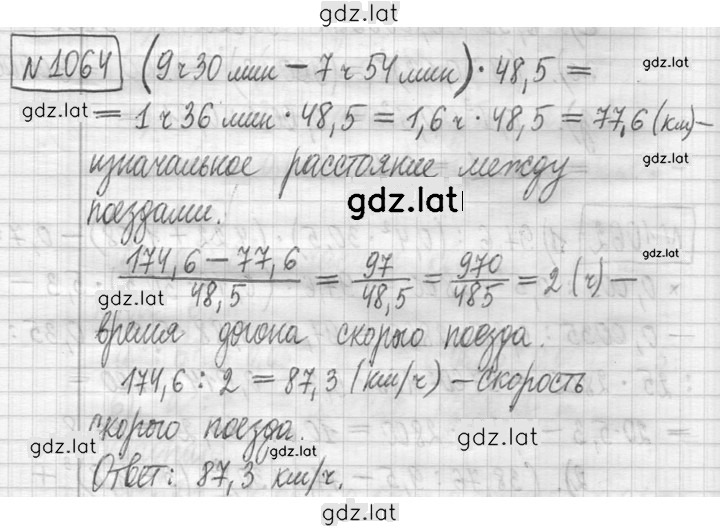 gdz.lat
N 1064 (9 ч 30 мин – 7 ч 54 мин) · 48,5 =
gdz.lat
gdz.lat
= 1 ч 36 мин · 48,5 = 1,6 ч · 48,5 = 77,6 (км) –
изначальное расстояние между
gdz.lat
поездами.
gdz.lat
174,6 – 77,6 / 48,5 = 97 / 48,5 = 970 / 485 = 2 (ч) –
gdz.lat
gdz.lat
время догона скорого поезда.
174,6 : 2 = 87,3 (км/ч) – скорость
скорого поезда.
gdz.lat
gdz.lat
gdz.lat
Ответ: 87,3 км/ч.
gdz.lat